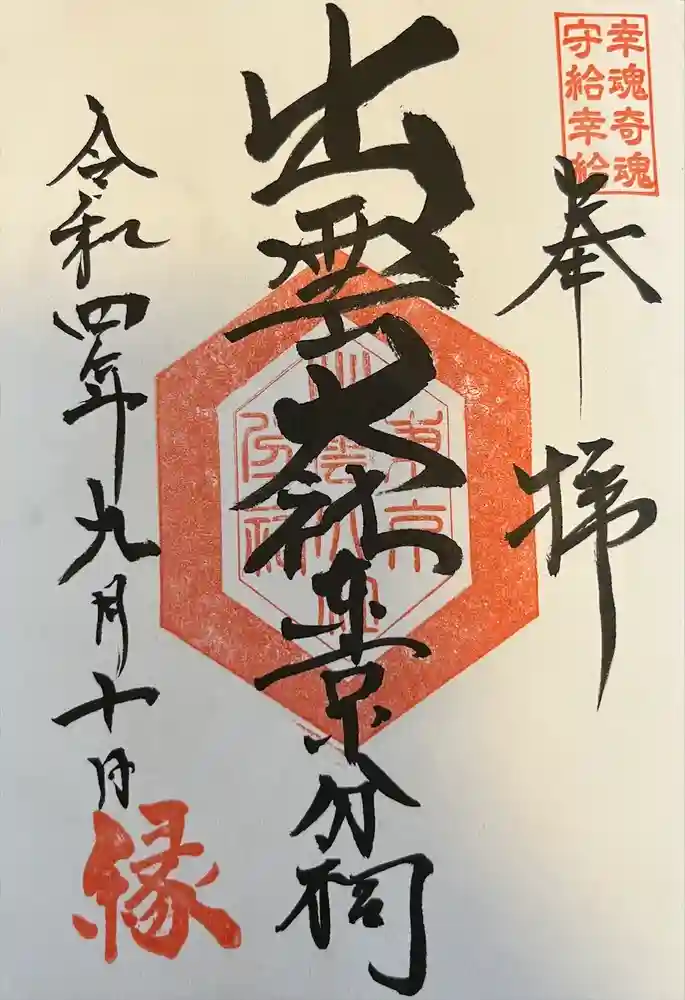 幸魂奇魂
守給幸給
奉拝
出雲大社東京分祠
東京
出雲大社
分祠
令和四年九月十日
縁